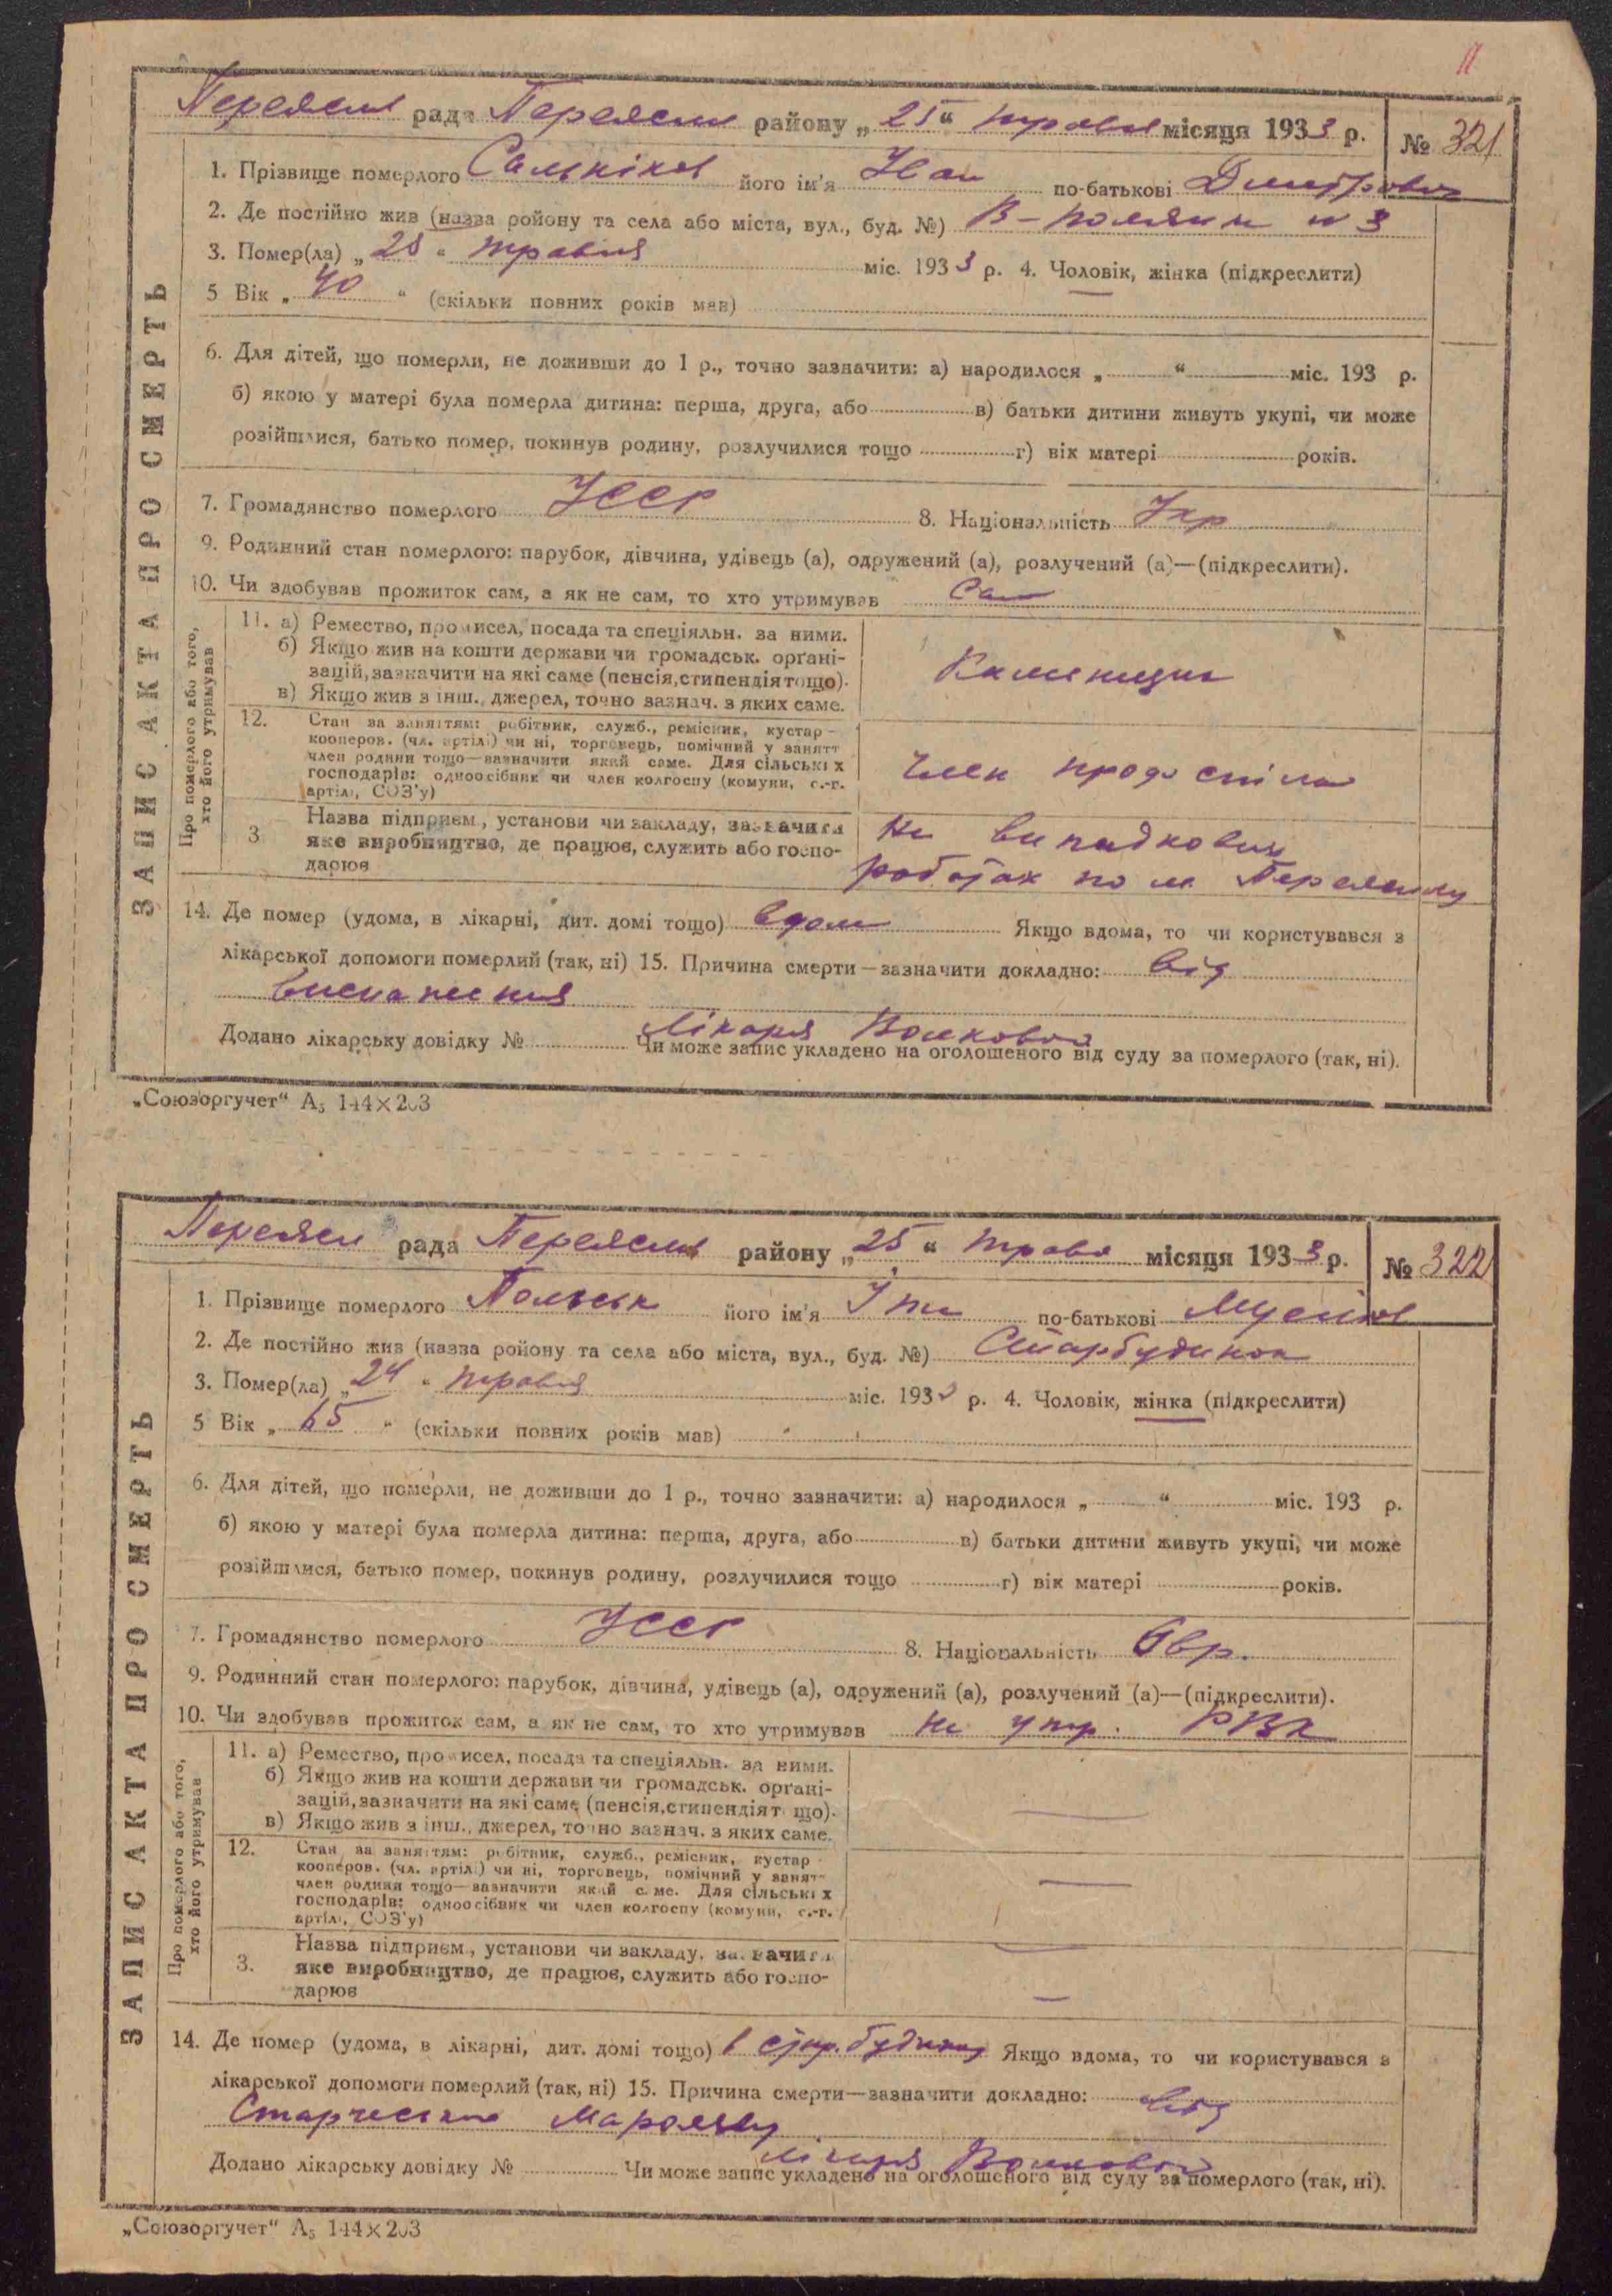 Переясл рада Переясл району „25“ травня місяця 1933 р. № 321
1. Прізвище померлого Сальніков його ім'я Іван по-батькові Дмитрович
2. Де постійно жив (назва ройону та села або міста, вул., буд. №) В- 3
3. Помер(ла) „25“ травня міс. 1933 р. 4. Чоловік, жінка (підкреслити)
5 Вік „40“ (скільки повних років мав)
6. Для дітей, що померли, не доживши до 1 р., точно зазначити: а) народилося „ “ міс. 193 р.
б) якою у матері була померла дитина: перша, друга, або в) батьки дитини живуть укупі, чи може
розійшлися, батько помер, покинув родину, розлучилися тощо г) вік матері років.
7. Громадянство померлого УССР 8. Національність Укр
9. Родинний стан померлого: парубок, дівчина, удівець (а), одружений (а), розлучений (а)—(підкреслити).
10. Чи здобував прожиток сам, а як не сам, то хто утримував Сам
ЗАПИС АКТА ПРО СМЕРТЬ
Про померлого або того,
хто його утримував
11. а) Ремество, промисел, посада та спеціяльн. за ними.
б) Якщо жив на кошти держави чи громадськ. орґані-
зацій, зазначити на які саме (пенсія, стипендія тощо).
в) Якщо жив з інш., джерел, точно зазнач. з яких саме.
Каменщик
12. Стан за заняттям: робітник, служб., ремісник, кустар-
кооперов. (чл. артілі) чи ні, торговець, помічний у занятт
член родини тощо—зазначити який саме. Для сільських
господарів: одноосібник чи член колгоспу (комуни, с.-г.
артілі, СОЗ'у)
Член проф спілки
3 Назва підприєм., установи чи закладу, зазначити
яке виробництво, де працює, служить або госпо-
дарює
На випадкових
роботах по м. Переяславу
14. Де помер (удома, в лікарні, дит. домі тощо) вдома Якщо вдома, то чи користувався з
лікарської допомоги померлий (так, ні) 15. Причина смерти—зазначити докладно: Від
виснаження
Лікаря Волкової
Додано лікарську довідку № Чи може запис укладено на оголошеного від суду за померлого (так, ні).
„Союзоргучет“ А5 144×203
Переясл рада Переясл району „25“ травня місяця 1933 р. № 322
1. Прізвище померлого його ім'я по-батькові
2. Де постійно жив (назва ройону та села або міста, вул., буд. №) Старбудинок
3. Помер(ла) „24“ травня міс. 1933 р. 4. Чоловік, жінка (підкреслити)
5 Вік „65“ (скільки повних років мав)
6. Для дітей, що померли, не доживши до 1 р., точно зазначити: а) народилося „ “ міс. 193 р.
б) якою у матері була померла дитина: перша, друга, або в) батьки дитини живуть укупі, чи може
розійшлися, батько помер, покинув родину, розлучилися тощо г) вік матері років.
7. Громадянство померлого УССР 8. Національність Євр.
9. Родинний стан померлого: парубок, дівчина, удівець (а), одружений (а), розлучений (а)—(підкреслити).
10. Чи здобував прожиток сам, а як не сам, то хто утримував На утр. РВК
ЗАПИС АКТА ПРО СМЕРТЬ
Про померлого або того,
хто його утримував
11. а) Ремество, промисел, посада та спеціяльн. за ними.
б) Якщо жив на кошти держави чи громадськ. орґані-
зацій, зазначити на які саме (пенсія, стипендія тощо).
в) Якщо жив з інш., джерел, точно зазнач. з яких саме.
12. Стан за заняттям: робітник, служб., ремісник, кустар-
кооперов. (чл. артілі) чи ні, торговець, помічний у занятт
член родини тощо—зазначити який саме. Для сільських
господарів: одноосібник чи член колгоспу (комуни, с.-г.
артілі, СОЗ'у)
3. Назва підприєм., установи чи закладу, зазначити
яке виробництво, де працює, служить або госпо-
дарює
14. Де помер (удома, в лікарні, дит. домі тощо) в стар. будинку Якщо вдома, то чи користувався з
лікарської допомоги померлий (так, ні) 15. Причина смерти—зазначити докладно: Від
Старческого Маразму
Лікаря Волкової
Додано лікарську довідку № Чи може запис укладено на оголошеного від суду за померлого (так, ні).
„Союзоргучет“ А5 144×203